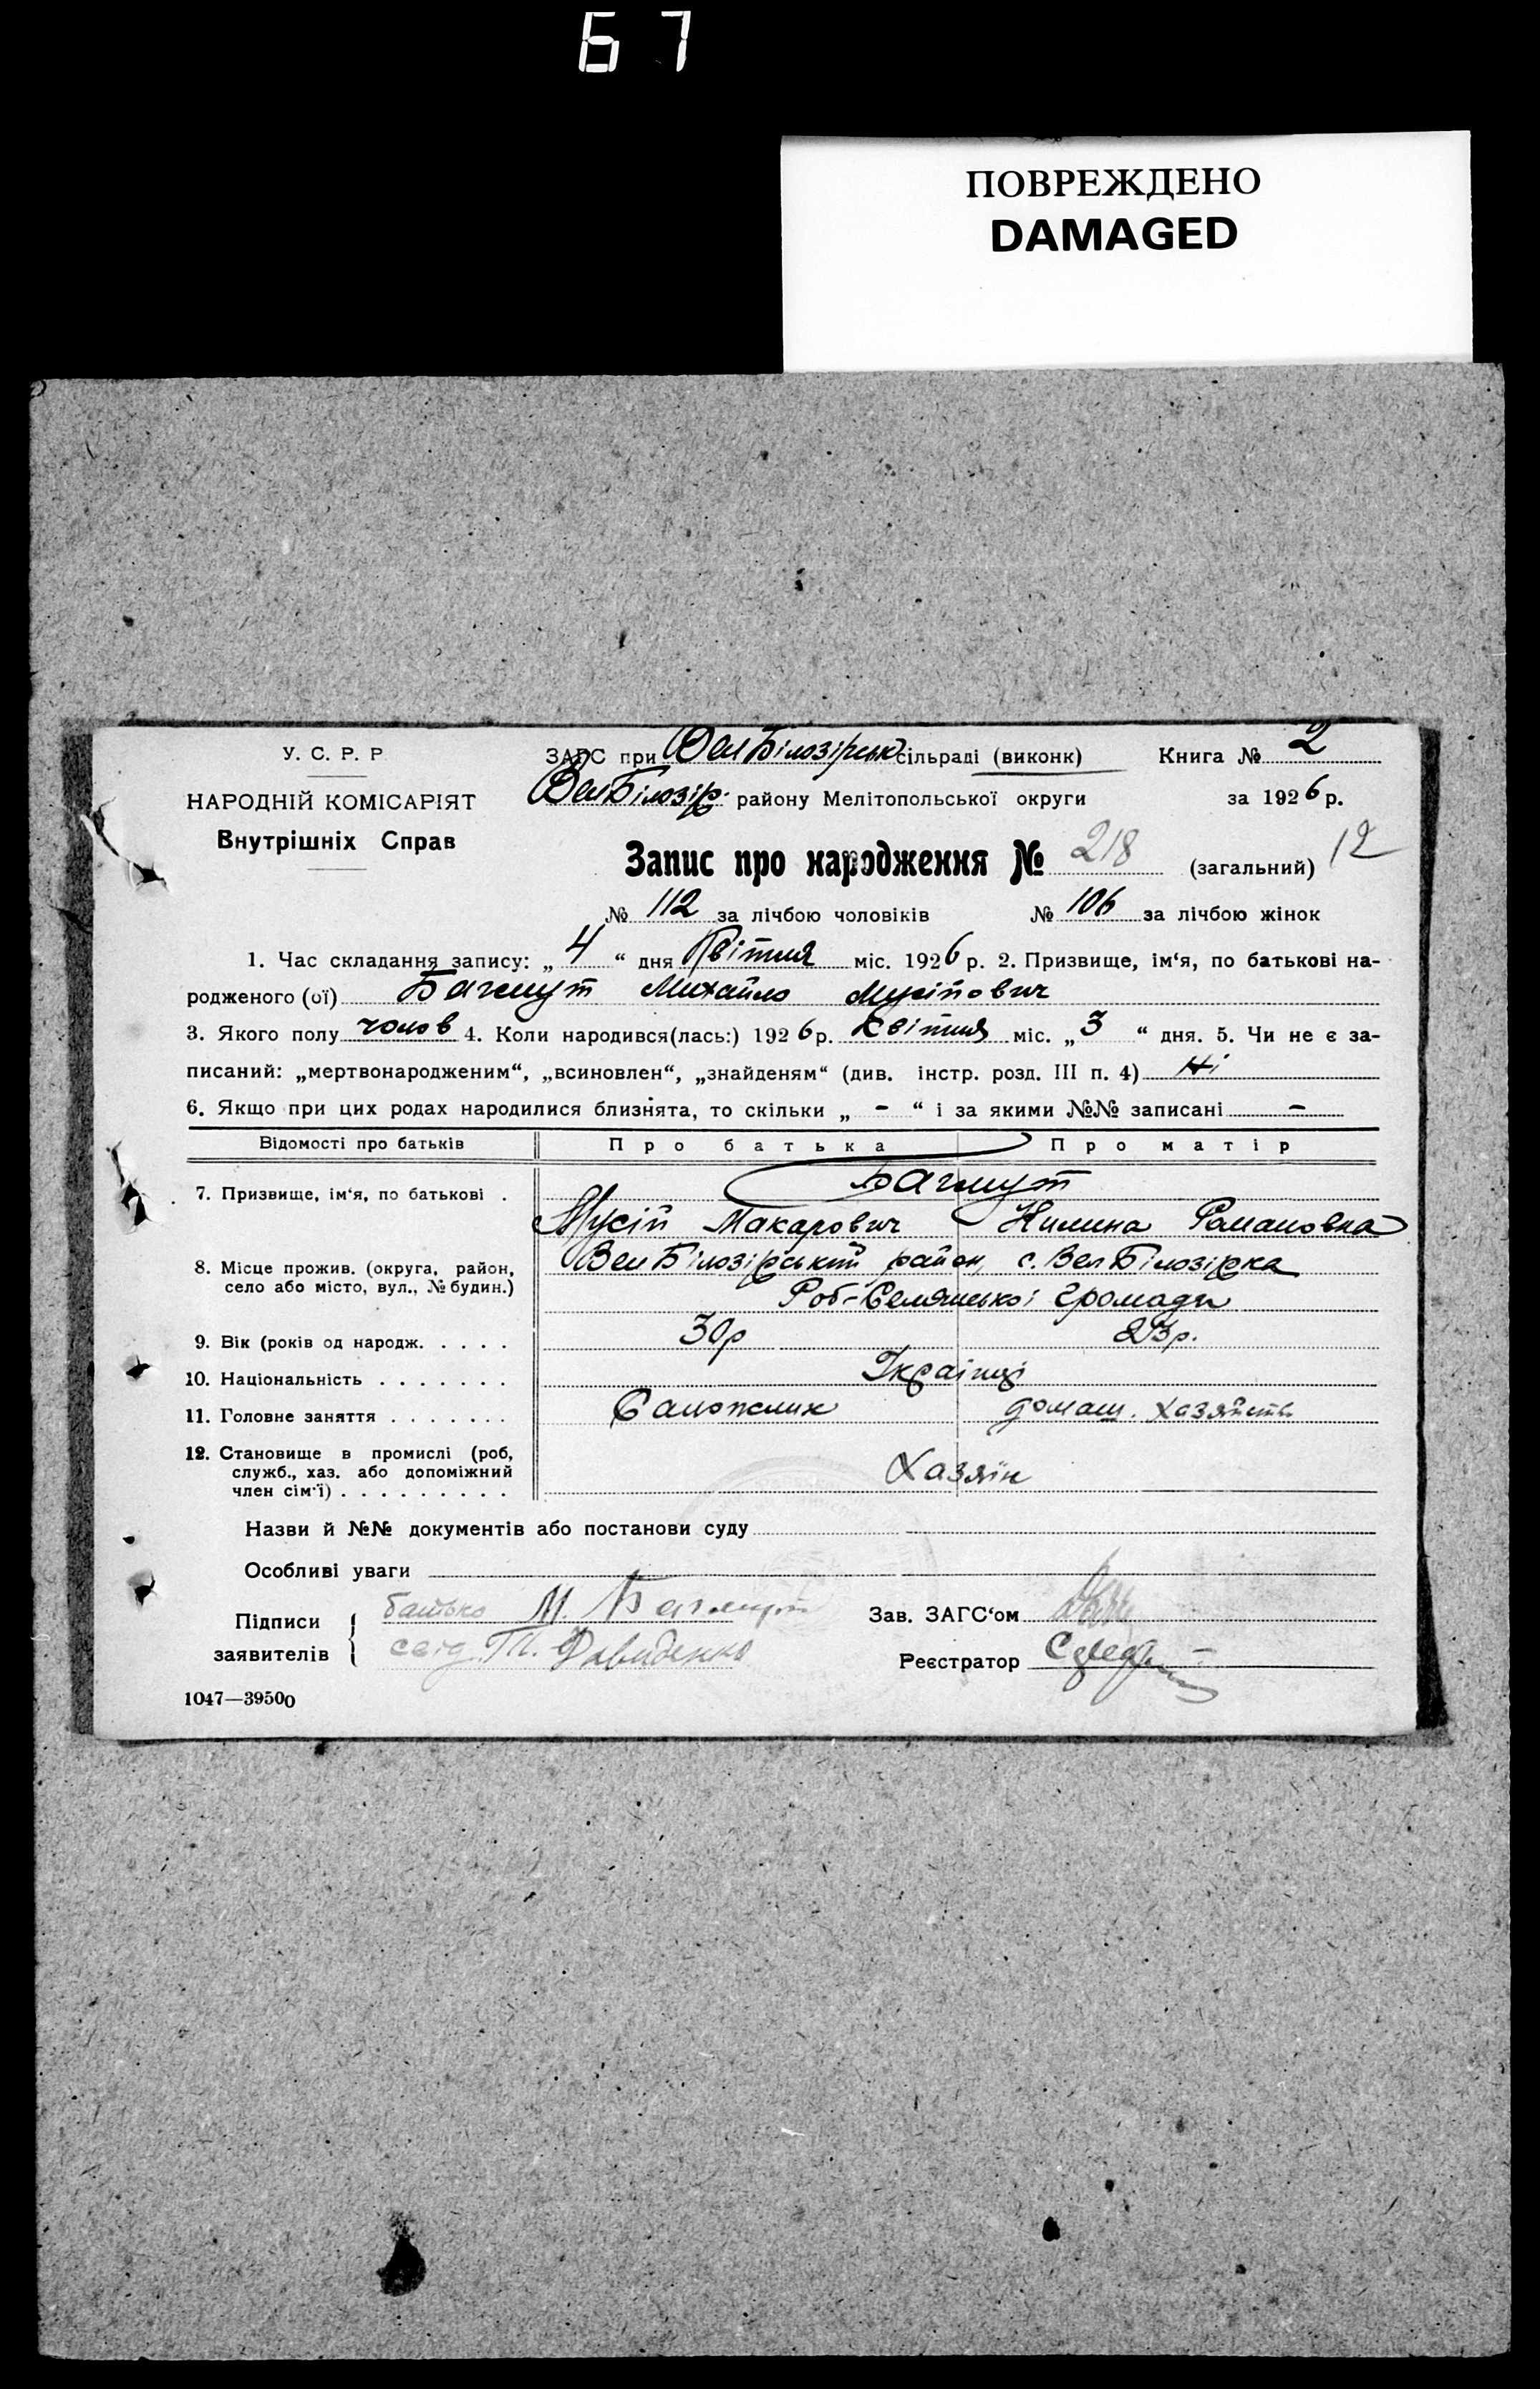 67
ПОВРЕЖДЕНО
DAMAGED
У. С. Р. Р
НАРОДНІЙ КОМІСАРІЯТ
Внутрішніх Справ
ЗАГС при Вел Білозірськ сільраді (виконк) Книга № 2
Вел Білозір. району Мелітопольської округи за 1926 р.
Запис про народження № 218 (загальний) 12
№ 112 за лічбою чоловіків № 106 за лічбою жінок
1. Час складання запису: „ 4 “ дня Квітня міс. 1926 р. 2. Призвище, ім‘я, по батькові на-
родженого (ої) Багмут Михайло Мусійович
3. Якого полу чолов 4. Коли народився(лась:) 1926 р. Квітня міс. „ 3 “ дня. 5. Чи не є за-
писаний: „мертвонародженим“, „всиновлен“, „знайденям“ (див. інстр. розд. III п. 4) Ні
6. Якщо при цих родах народилися близнята, то скільки „ - “ і за якими №№ записані -
Відомості про батьків Про батька Про матір
7. Призвище, ім‘я, по батькові . Багмут
Мусій Макарович Килина Романовна
8. Місце прожив. (округа, район, Вел Білозірський район, с. Вел Білозірка
село або місто, вул., № будин.) Роб-Селянської громади
9. Вік (років од народж. . . . . 30р 23р.
10. Національність . . . . . . . Українці
11. Головне заняття . . . . . . . Сапожник домаш. хазяйств
12. Становище в промислі (роб,
служб., хаз. або допоміжний Хазяїн
член сім‘ї) . . . . . . . . .
Назви й №№ документів або постанови суду
Особливі уваги
Підписи заявителів
батько М. Багмут
свід. Давиденко
Зав. ЗАГС‘ом
Реєстратор
1047—39500